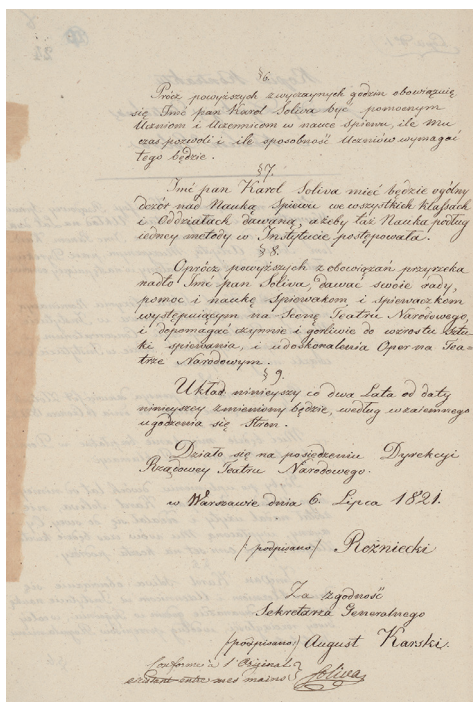 § 6.
Prócz powyższych zwyczaynych godzin obowiązuie
się Imć pan Karol Soliva być pomocnym
Uczniom i Uczennicom w nauce śpiewu, ile mu
czas pozwoli i ile sposobność Uczniów wymagać
tego będzie.
§ 7.
Imć pan Karol Soliva mieć będzie ogólny
dozór nad Nauką śpiewu we wszystkich klassach
i Oddziałach dawaną, ażeby taż Nauka podług
iedney metody w Instytucie postępowała.
§ 8.
Oprócz powyższych zobowiązań przyrzeka
nadto Imć pan Soliva, dawać swoie rady,
pomoc i naukę śpiewakom i śpiewaczkom
występuiącym na Scenę Teatru Narodowego,
i dopomagać czynnie i gorliwie do wzrostu Sztu-
ki śpiewania, i udoskonalenia Oper na Tea-
trze Narodowym.
§ 9.
Układ ninieyszy co dwa Lata od daty
ninieyszey zmienionym będzie, według wzaiemnego
ugodzenia się Stron.
Działo się na posiedzeniu Dyrekcyi
Rządowey Teatru Narodowego.
w Warszawie dnia 6. Lipca 1821.
/: podpisano :/ Rożniecki
Za zgodność
Sekretarza Generalnego
/: podpisano :/ August Karski.
Conforme à l'Original
existant entre mes mains } Soliva